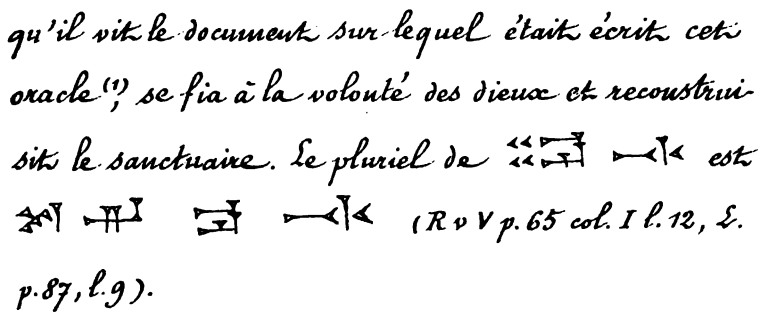 qu'il vit le document sur lequel était écrit cet
oracle (1), se fia à la volonté des dieux et reconstrui-
sit le sanctuaire. Le pluriel de est
(R v V p. 65 col. I l. 12, L.
p. 87, l. 9).